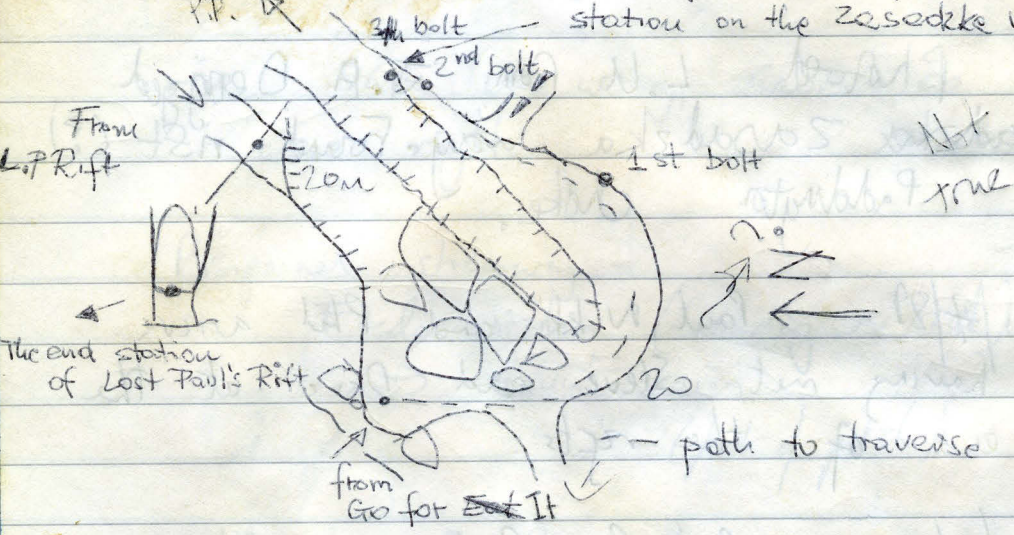 station on the Zasadkke
3th bolt
2nd bolt
1st bolt
From
L.P Rift
20m
Not
true
?
N
The end station
of Lost Paul's Rift
20
-- path to traverse
from
Go for It